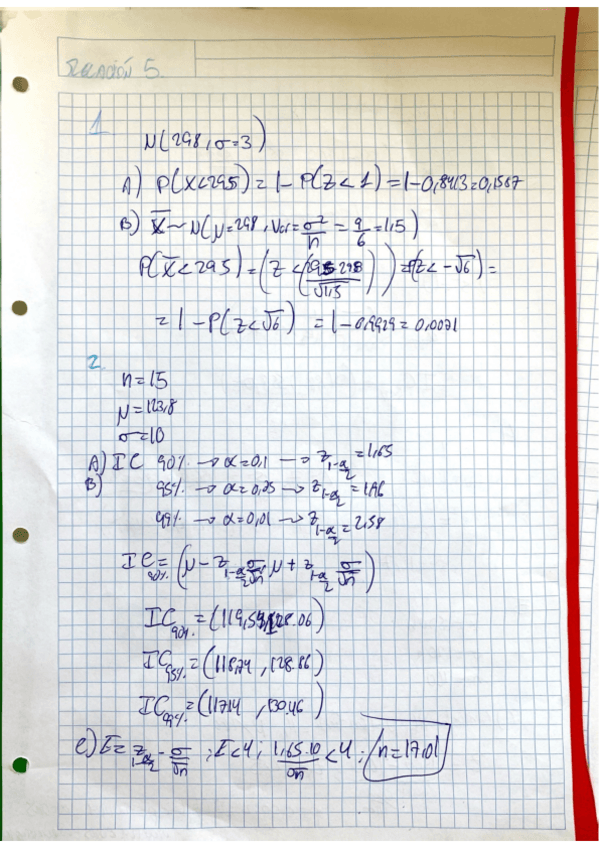 RELACIÓN 5.
1
N(298, σ=3)
A) P(X<295) = 1 - P(Z < 1) = 1 - 0,8413 = 0,1587
B) X̄ ~ N(μ=298, Var = σ²/n = 9/6 = 1,5)
P(X̄ < 295) = (Z < (295-298/√1,5)) = P(Z < -√6) =
= 1 - P(Z < √6) = 1 - 0,9929 = 0,0071
2.
n = 15
μ = 123,8
σ = 10
A) IC 90% → α = 0,1 → z_{1-α/2} = 1,65
B) 95% → α = 0,05 → z_{1-α/2} = 1,96
99% → α = 0,01 → z_{1-α/2} = 2,58
IC_{90%} = (μ - z_{1-α/2} σ/√n, μ + z_{1-α/2} σ/√n)
IC_{90%} = (119,54, 128.06)
IC_{95%} = (118,74, 128.86)
IC_{99%} = (117,14, 130,46)
C) E = z_{1-α/2} · σ/√n ; E < 4 ; 1,65·10/√n < 4 ; n = 17,01